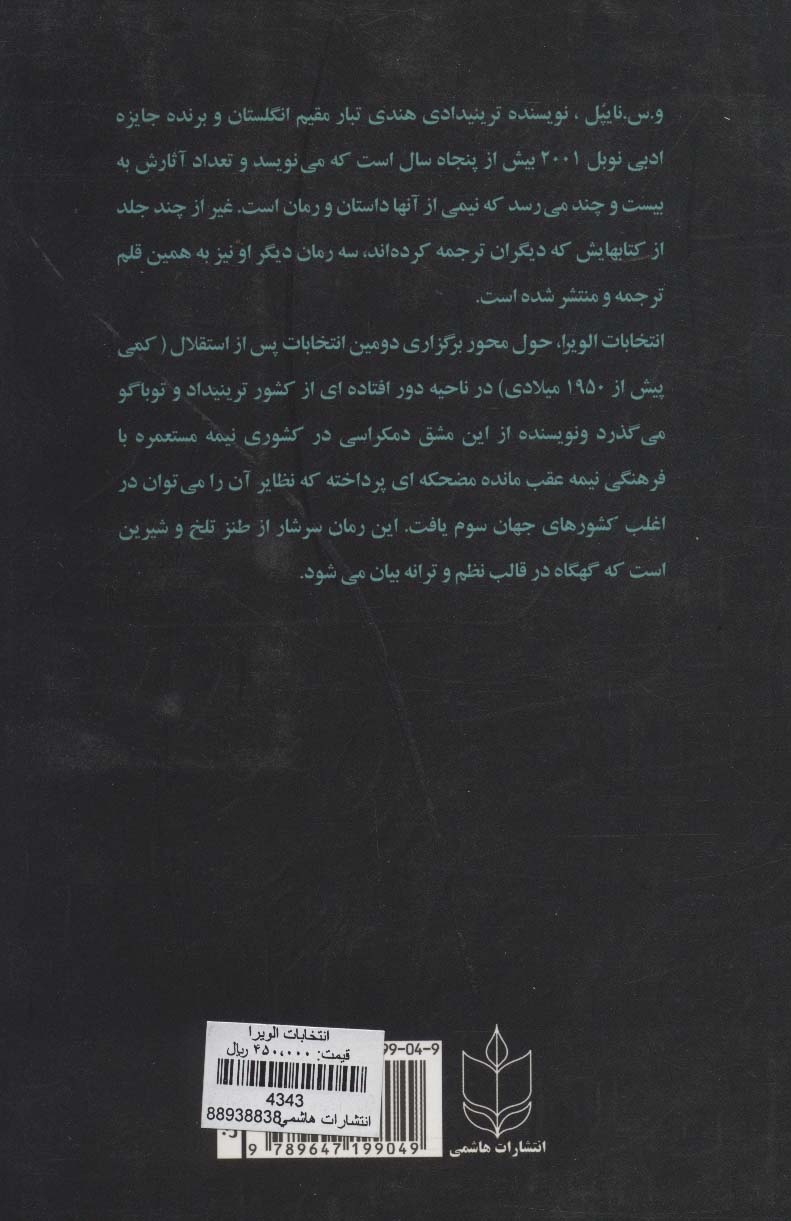 و.س.نایپُل ، نویسنده ترینیدادی هندی تبار مقیم انگلستان و برنده جایزه
ادبی نوبل ۲۰۰۱ بیش از پنجاه سال است که می‌نویسد و تعداد آثارش به
بیست و چند می‌رسد که نیمی از آنها داستان و رمان است. غیر از چند جلد
از کتابهایش که دیگران ترجمه کرده‌اند، سه رمان دیگر او نیز به همین قلم
ترجمه و منتشر شده است.
انتخابات الویرا، حول محور برگزاری دومین انتخابات پس از استقلال ( کمی
پیش از ۱۹۵۰ میلادی) در ناحیه دور افتاده ای از کشور ترینیداد و توباگو
می‌گذرد ونویسنده از این مشق دمکراسی در کشوری نیمه مستعمره با
فرهنگی نیمه عقب مانده مضحکه ای پرداخته که نظایر آن را می‌توان در
اغلب کشورهای جهان سوم یافت. این رمان سرشار از طنز تلخ و شیرین
است که گهگاه در قالب نظم و ترانه بیان می شود.
انتخابات الویرا
قیمت: ۴۵۰,۰۰۰ ریال
4343
انتشارات هاشمی88938838
99-04-9
9 789647 199049
انتشارات هاشمی